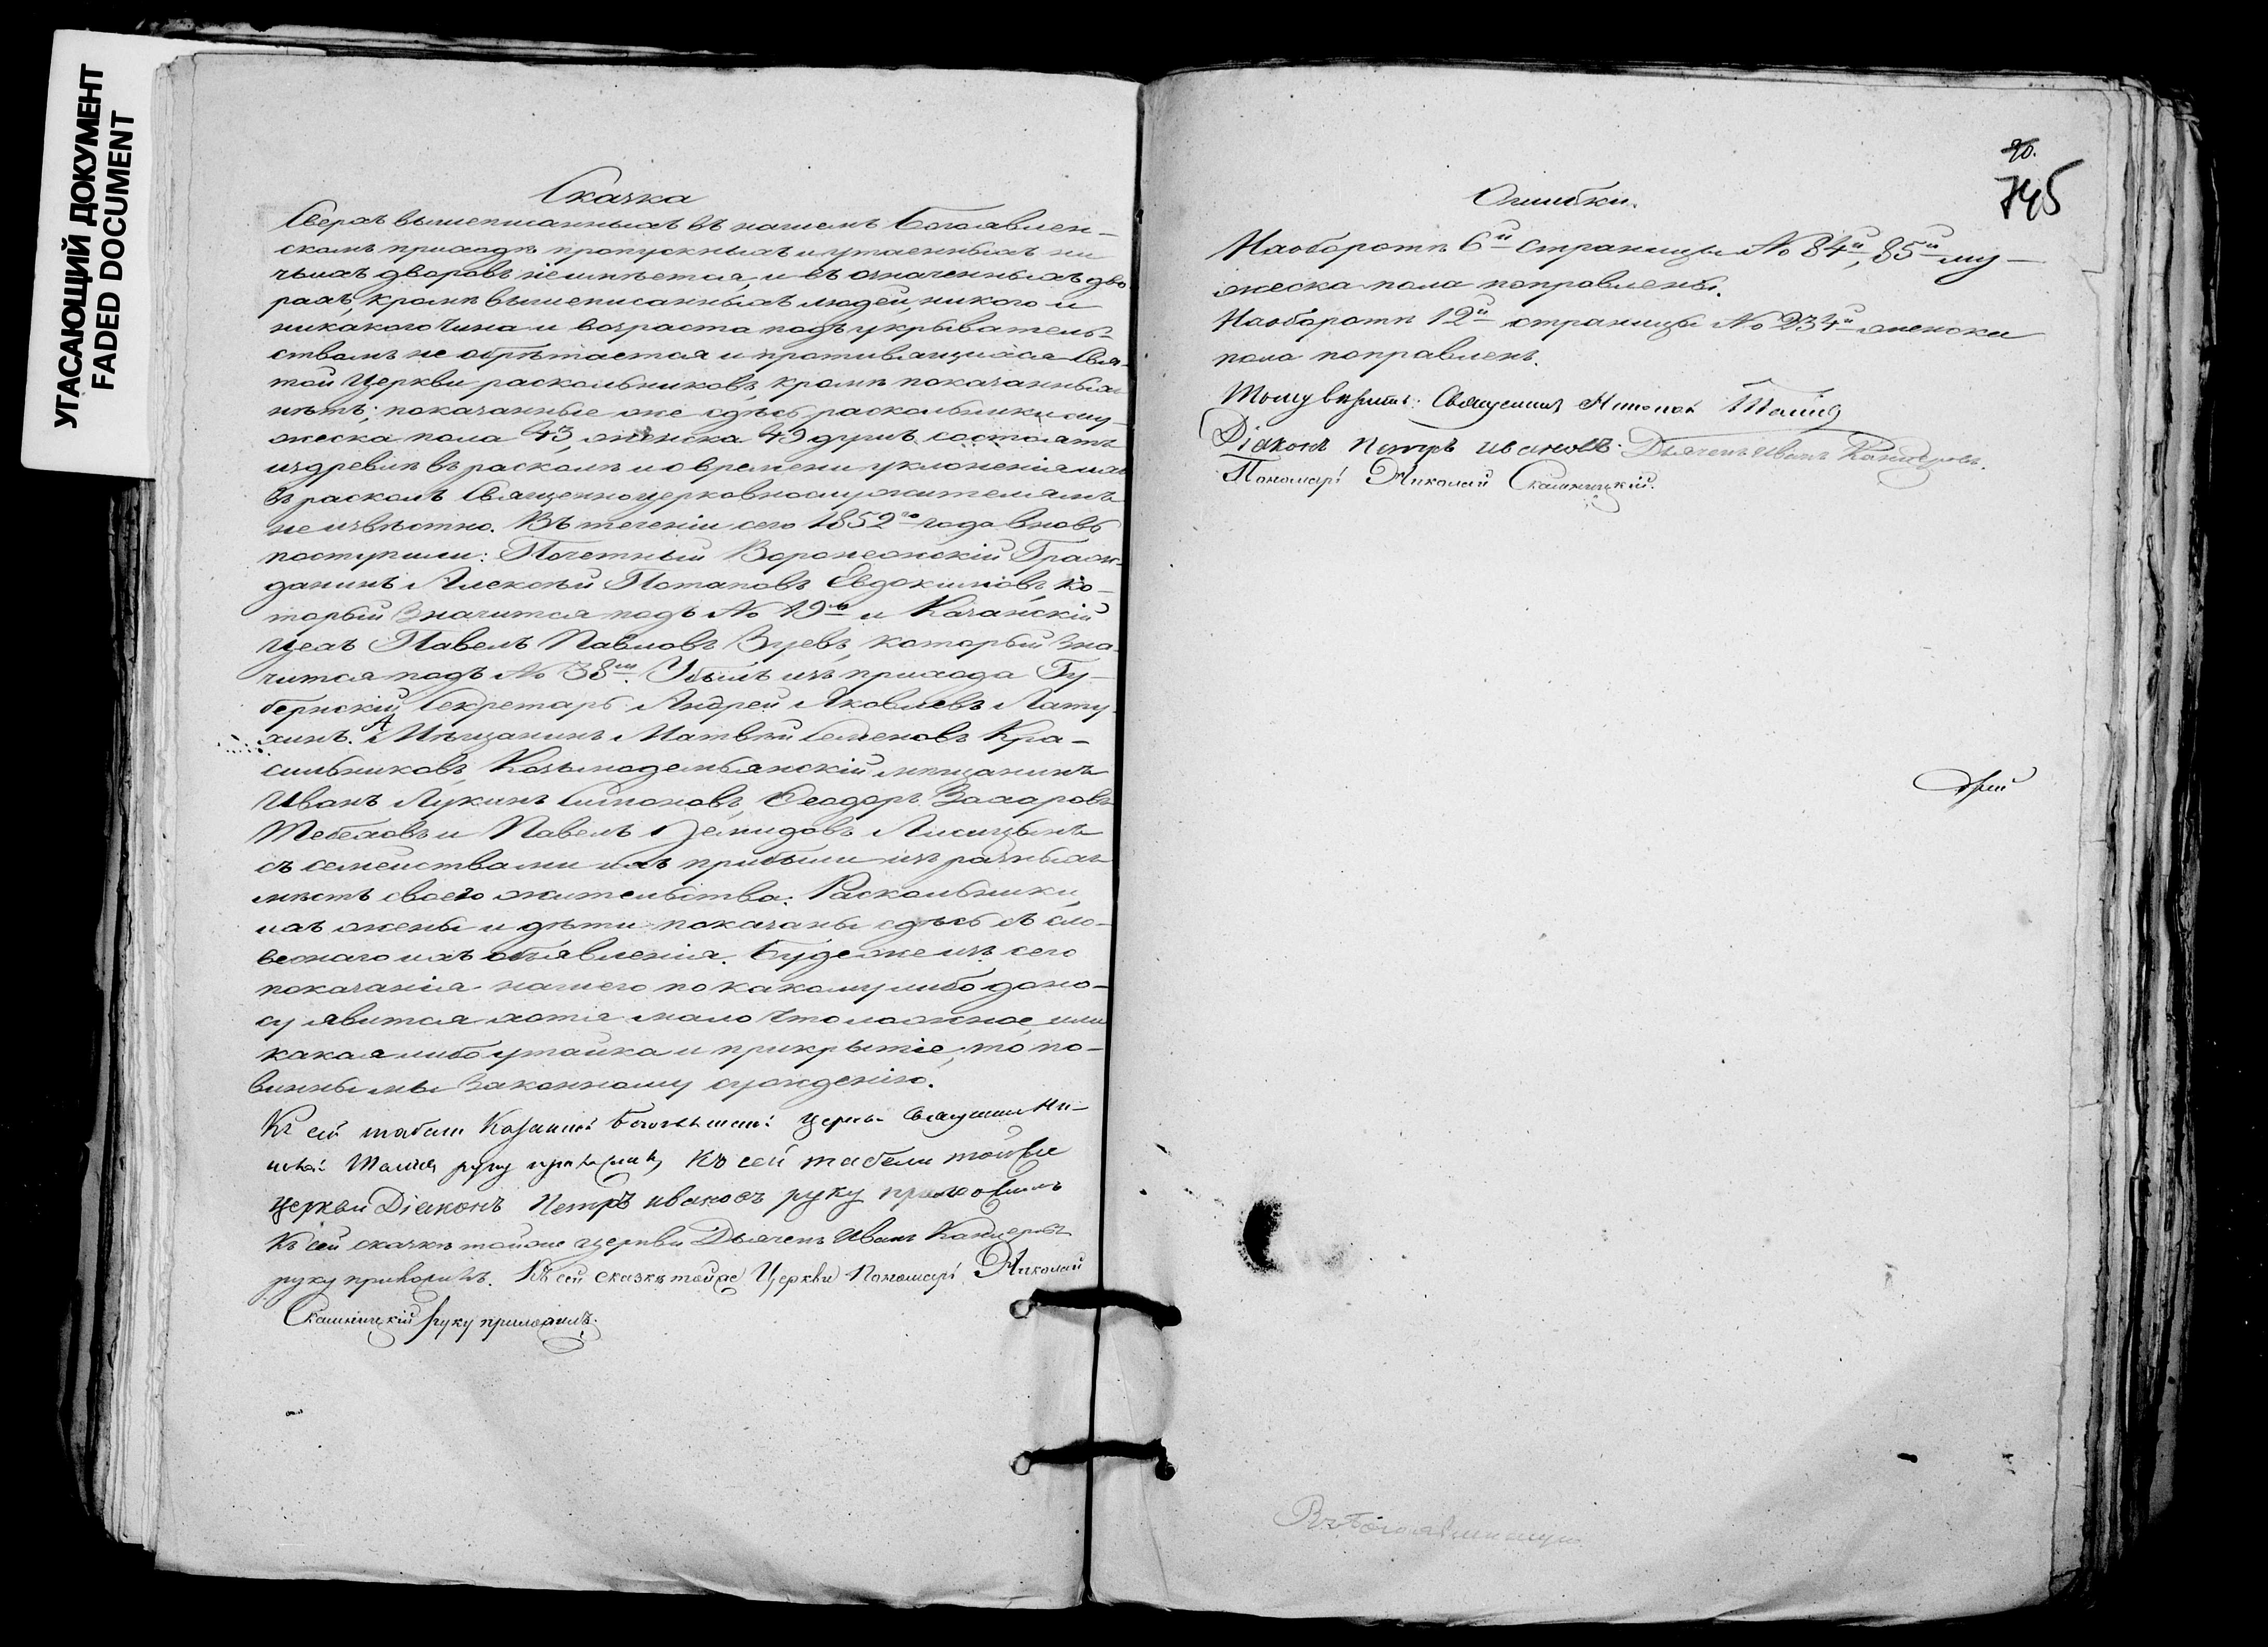 УГАСАЮЩИЙ ДОКУМЕНТ
FADED DOCUMENT
Сказка
Сверхъ вышеписанныхъ въ нашемъ Богоявлен-
скомъ приходѣ пропускныхъ и утаенныхъ ни
чьихъ дворовъ неимѣется, и въ означенныхъ дво
рахъ, кромѣ вышеписанныхъ людей, никого и
никакого чина и возраста подъ укрыватель-
ствомъ не обрѣтается и противящихся Свя-
той Церкви раскольниковъ, кромѣ показанныхъ
нѣтъ; показанные же сдѣсь раскольники му-
жеска пола 43, женска 49 душъ состоятъ
издревле въ расколѣ и о времени уклоненія ихъ
въ расколъ Священноцерковнослужителямъ
не извѣстно. Въ теченіи сего 1852го года вновь
поступили: Почетный Воронежскій Граж-
данинъ Алексѣй Потаповъ Евдокимовъ, ко-
торый значится подъ № 19мъ и Казанскій
Цехъ Павелъ Павловъ Зуевъ, который зна-
чится подъ № 38мъ. Убылъ изъ прихода Гу-
бернскій Секретарь Андрей Яковлевъ Лату-
хинъ. А Мѣщанинъ Матвѣй Семеновъ Кра-
сильниковъ, Козьмодемьянскій мѣщанинъ
Иванъ Лукинъ Симоновъ, Ѳеодоръ Захаровъ
Тебеховъ и Павелъ Демидовъ Лисицынъ
съ семействами ихъ прибыли изъ разныхъ
мѣстъ своего жительства. Раскольники,
ихъ жены и дѣти показаны сдѣсь съ сло-
веснаго ихъ объявленія. Буде же изъ сего
показанія нашего по какому либо доно-
су явится хотя мало что ложное или
какая либо утайка и прикрытіе, то по-
винны мы законному сужденію.
Къ сей табели Казанской Богоявленской Церкви Священникъ Ни-
руку приложилъ Къ сей табели тойже
церкви Діаконъ Петръ Ивановъ руку приложилъ
Къ сей сказкѣ тойже церкви Дьячекъ Иванъ
руку приложилъ. Къ сей сказкѣ тойже Церкви Пономарь Николай
руку приложилъ.
90.
745
Ошибки.
На оборотѣ 6й страницы № 84й, 85й му-
жеска пола поправлены.
На оборотѣ 12й страницы № 234й женска
пола поправленъ.
Священникъ
Діаконъ Петръ Ивановъ. Дьячекъ Иванъ
Пономарь Николай